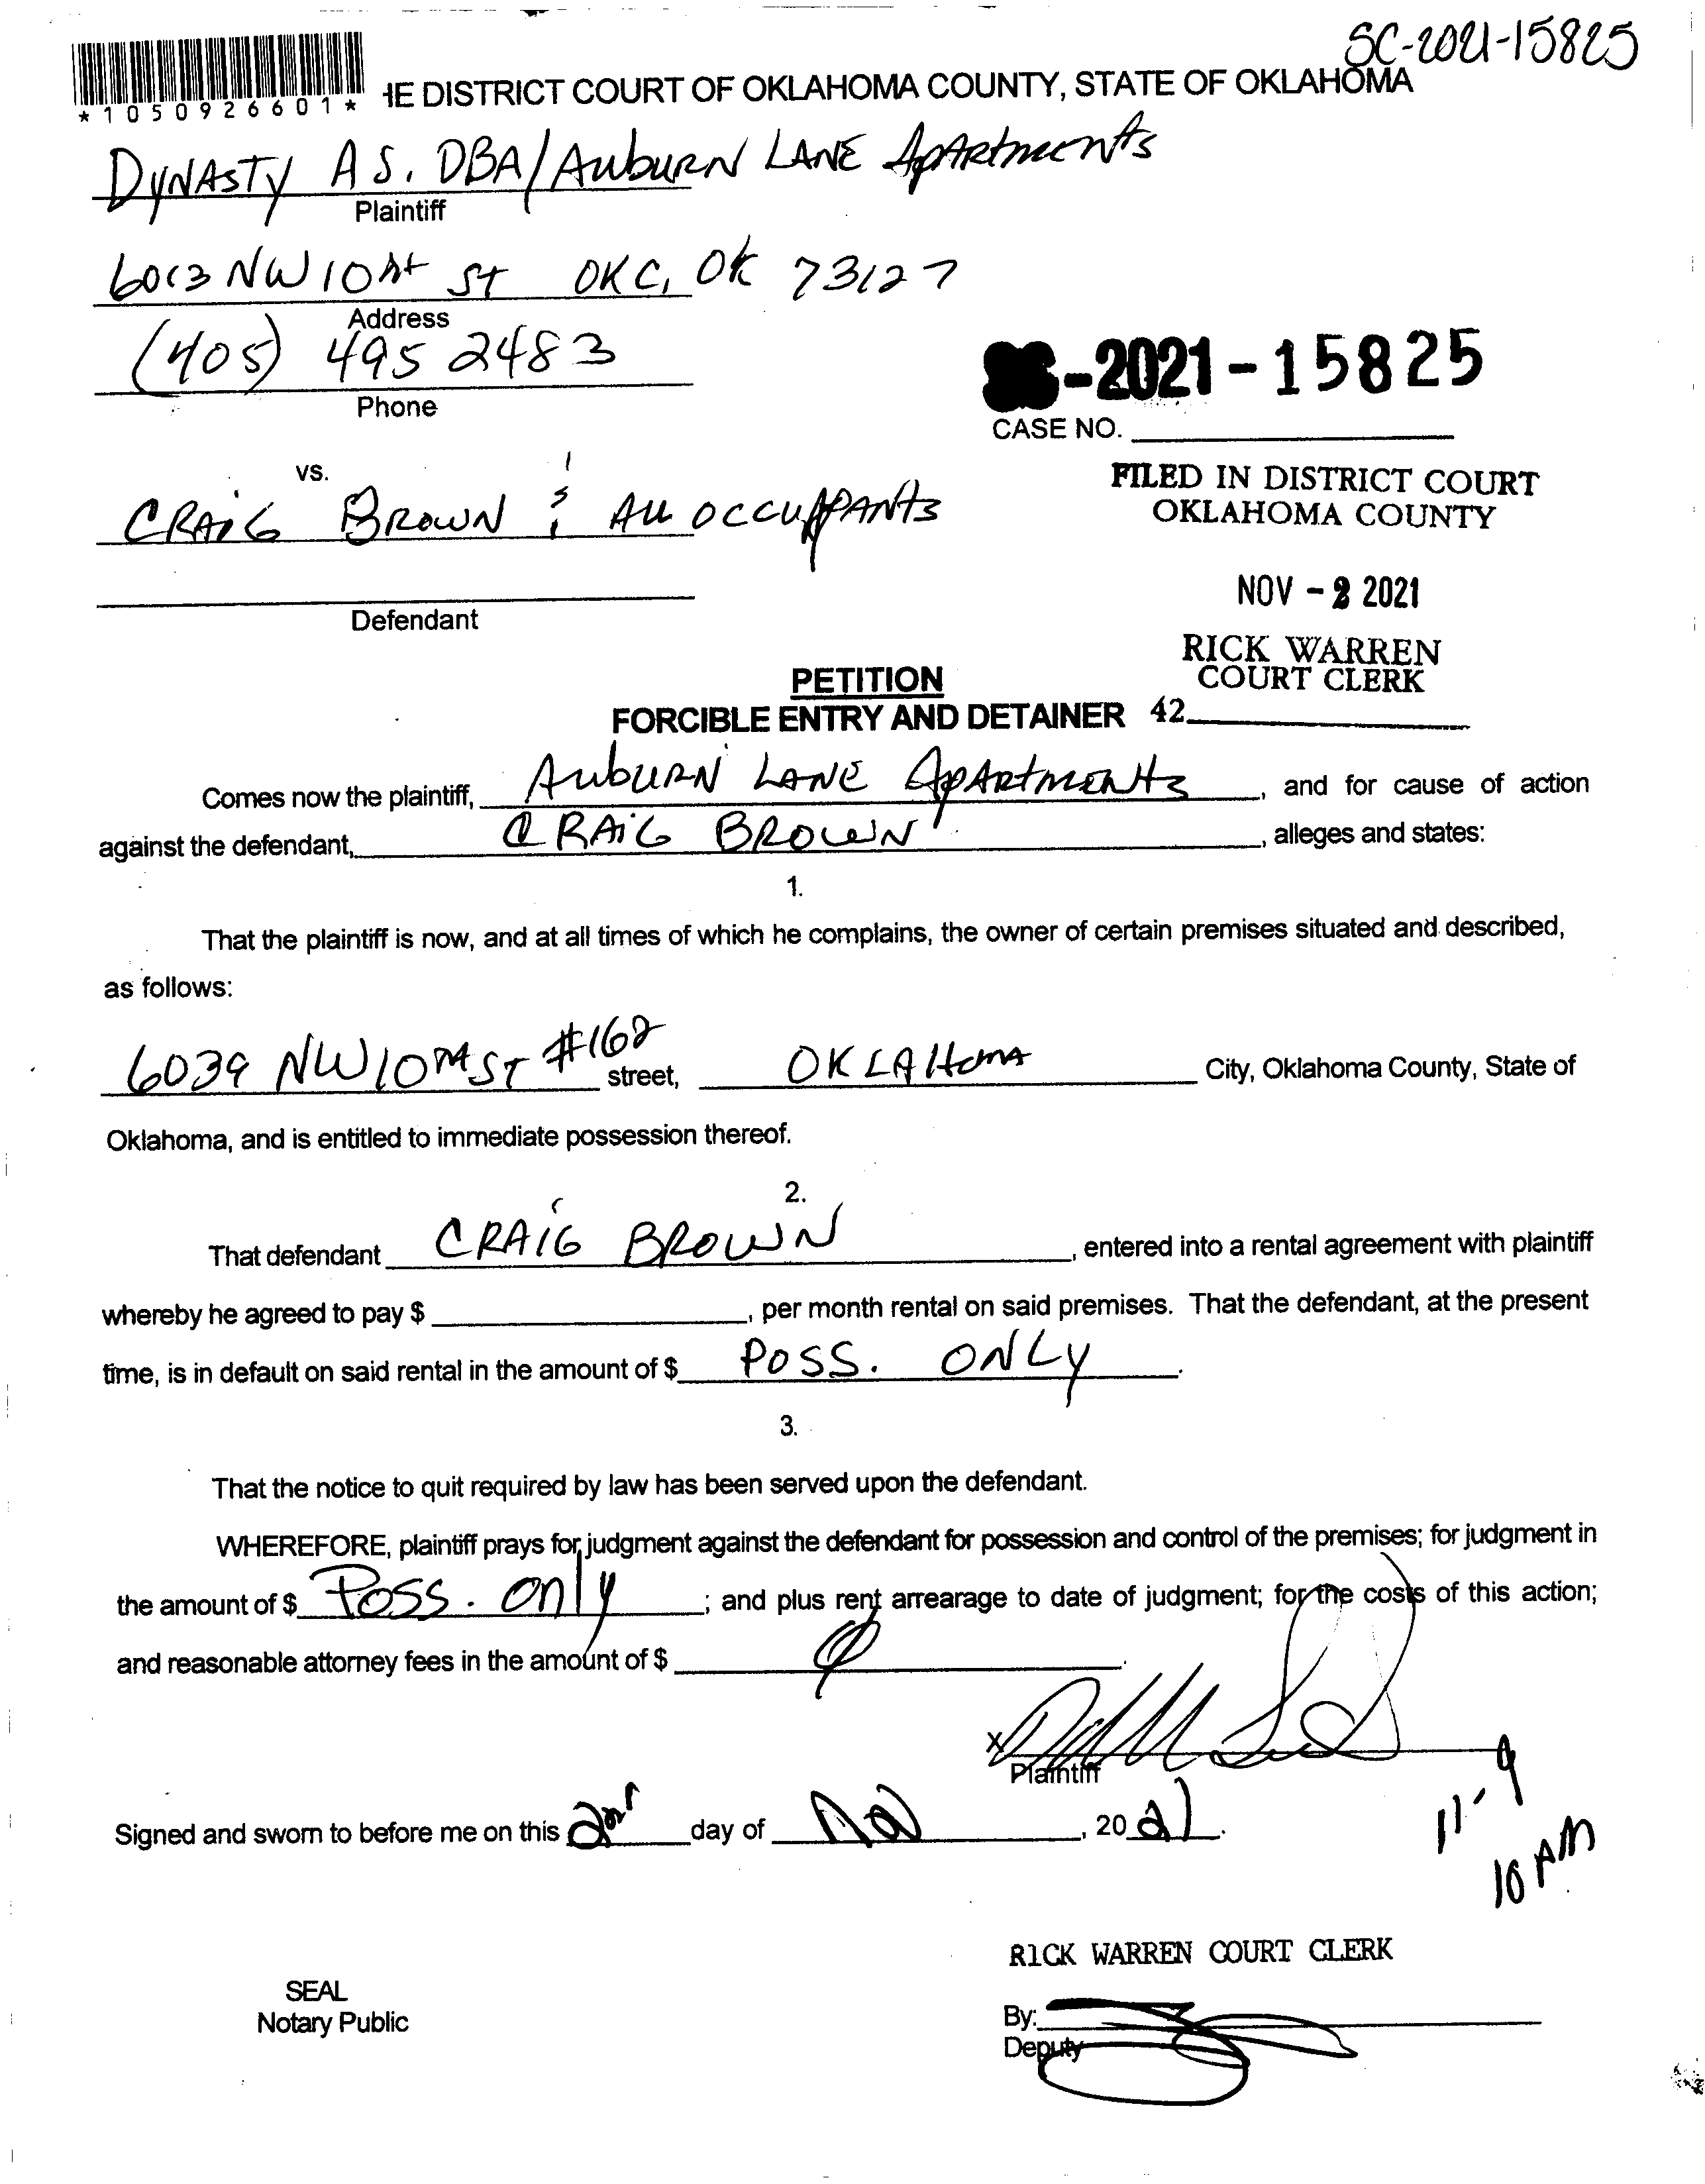 SC-2021-15825
*1050926601* HE DISTRICT COURT OF OKLAHOMA COUNTY, STATE OF OKLAHOMA
DYNASTY A S. DBA/AUBURN LANE APARTMENTS
Plaintiff
6013 NW 10th ST OKC, OK 73127
Address
(405) 495 2483
Phone
-2021-15825
CASE NO.
vs.
FILED IN DISTRICT COURT
OKLAHOMA COUNTY
CRAIG BROWN & ALL OCCUPPANTS
NOV - 2 2021
Defendant
RICK WARREN
COURT CLERK
PETITION
FORCIBLE ENTRY AND DETAINER 42
Comes now the plaintiff, AUBURN LANE APARTMENTS, and for cause of action
against the defendant, CRAIG BROWN, alleges and states:
1.
That the plaintiff is now, and at all times of which he complains, the owner of certain premises situated and described,
as follows:
6039 NW 10th ST #162 street, OKLAHOMA City, Oklahoma County, State of
Oklahoma, and is entitled to immediate possession thereof.
2.
That defendant CRAIG BROWN, entered into a rental agreement with plaintiff
whereby he agreed to pay $ , per month rental on said premises. That the defendant, at the present
time, is in default on said rental in the amount of $ POSS. ONLY.
3.
That the notice to quit required by law has been served upon the defendant.
WHEREFORE, plaintiff prays for judgment against the defendant for possession and control of the premises; for judgment in
the amount of $ Poss. only; and plus rent arrearage to date of judgment; for the costs of this action;
and reasonable attorney fees in the amount of $ .
X
Plaintiff
Signed and sworn to before me on this 2nd day of Nov, 2021.
11-9
10 AM
RICK WARREN COURT CLERK
SEAL
Notary Public
By:
Deputy